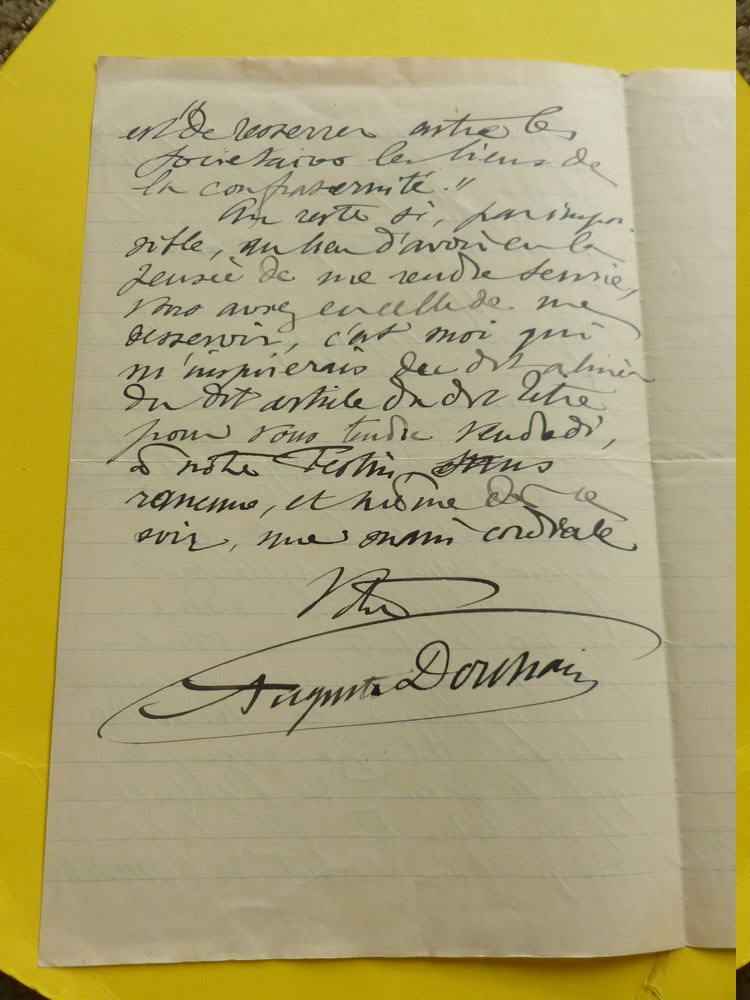 est "de resserrer entre les
sociétaires les liens de
la confraternité."
Au reste si, par impos-
sible, au lieu d'avoir eu la
pensée de me rendre service,
vous aviez eu celle de me
desservir, c'est moi qui
m'inspirerais du dit alinéa
du dit article du dit titre
pour vous tendre vendredi,
à notre festin, sans
rancune, et même dès ce
soir, une main cordiale
Votre
Auguste Dorchain